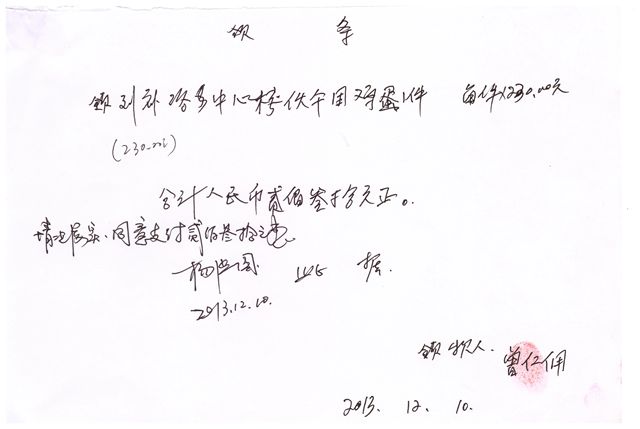 领 条
领到补 务中心 伙 用鸡蛋1件 每件×230.00元
(230.00元)
合计人民币贰佰叁拾元正。
情况属实、同意支付贰佰叁拾元
杨 国 此 据.
2013.12.10.
领款人. 曾仁佣
2013. 12. 10.